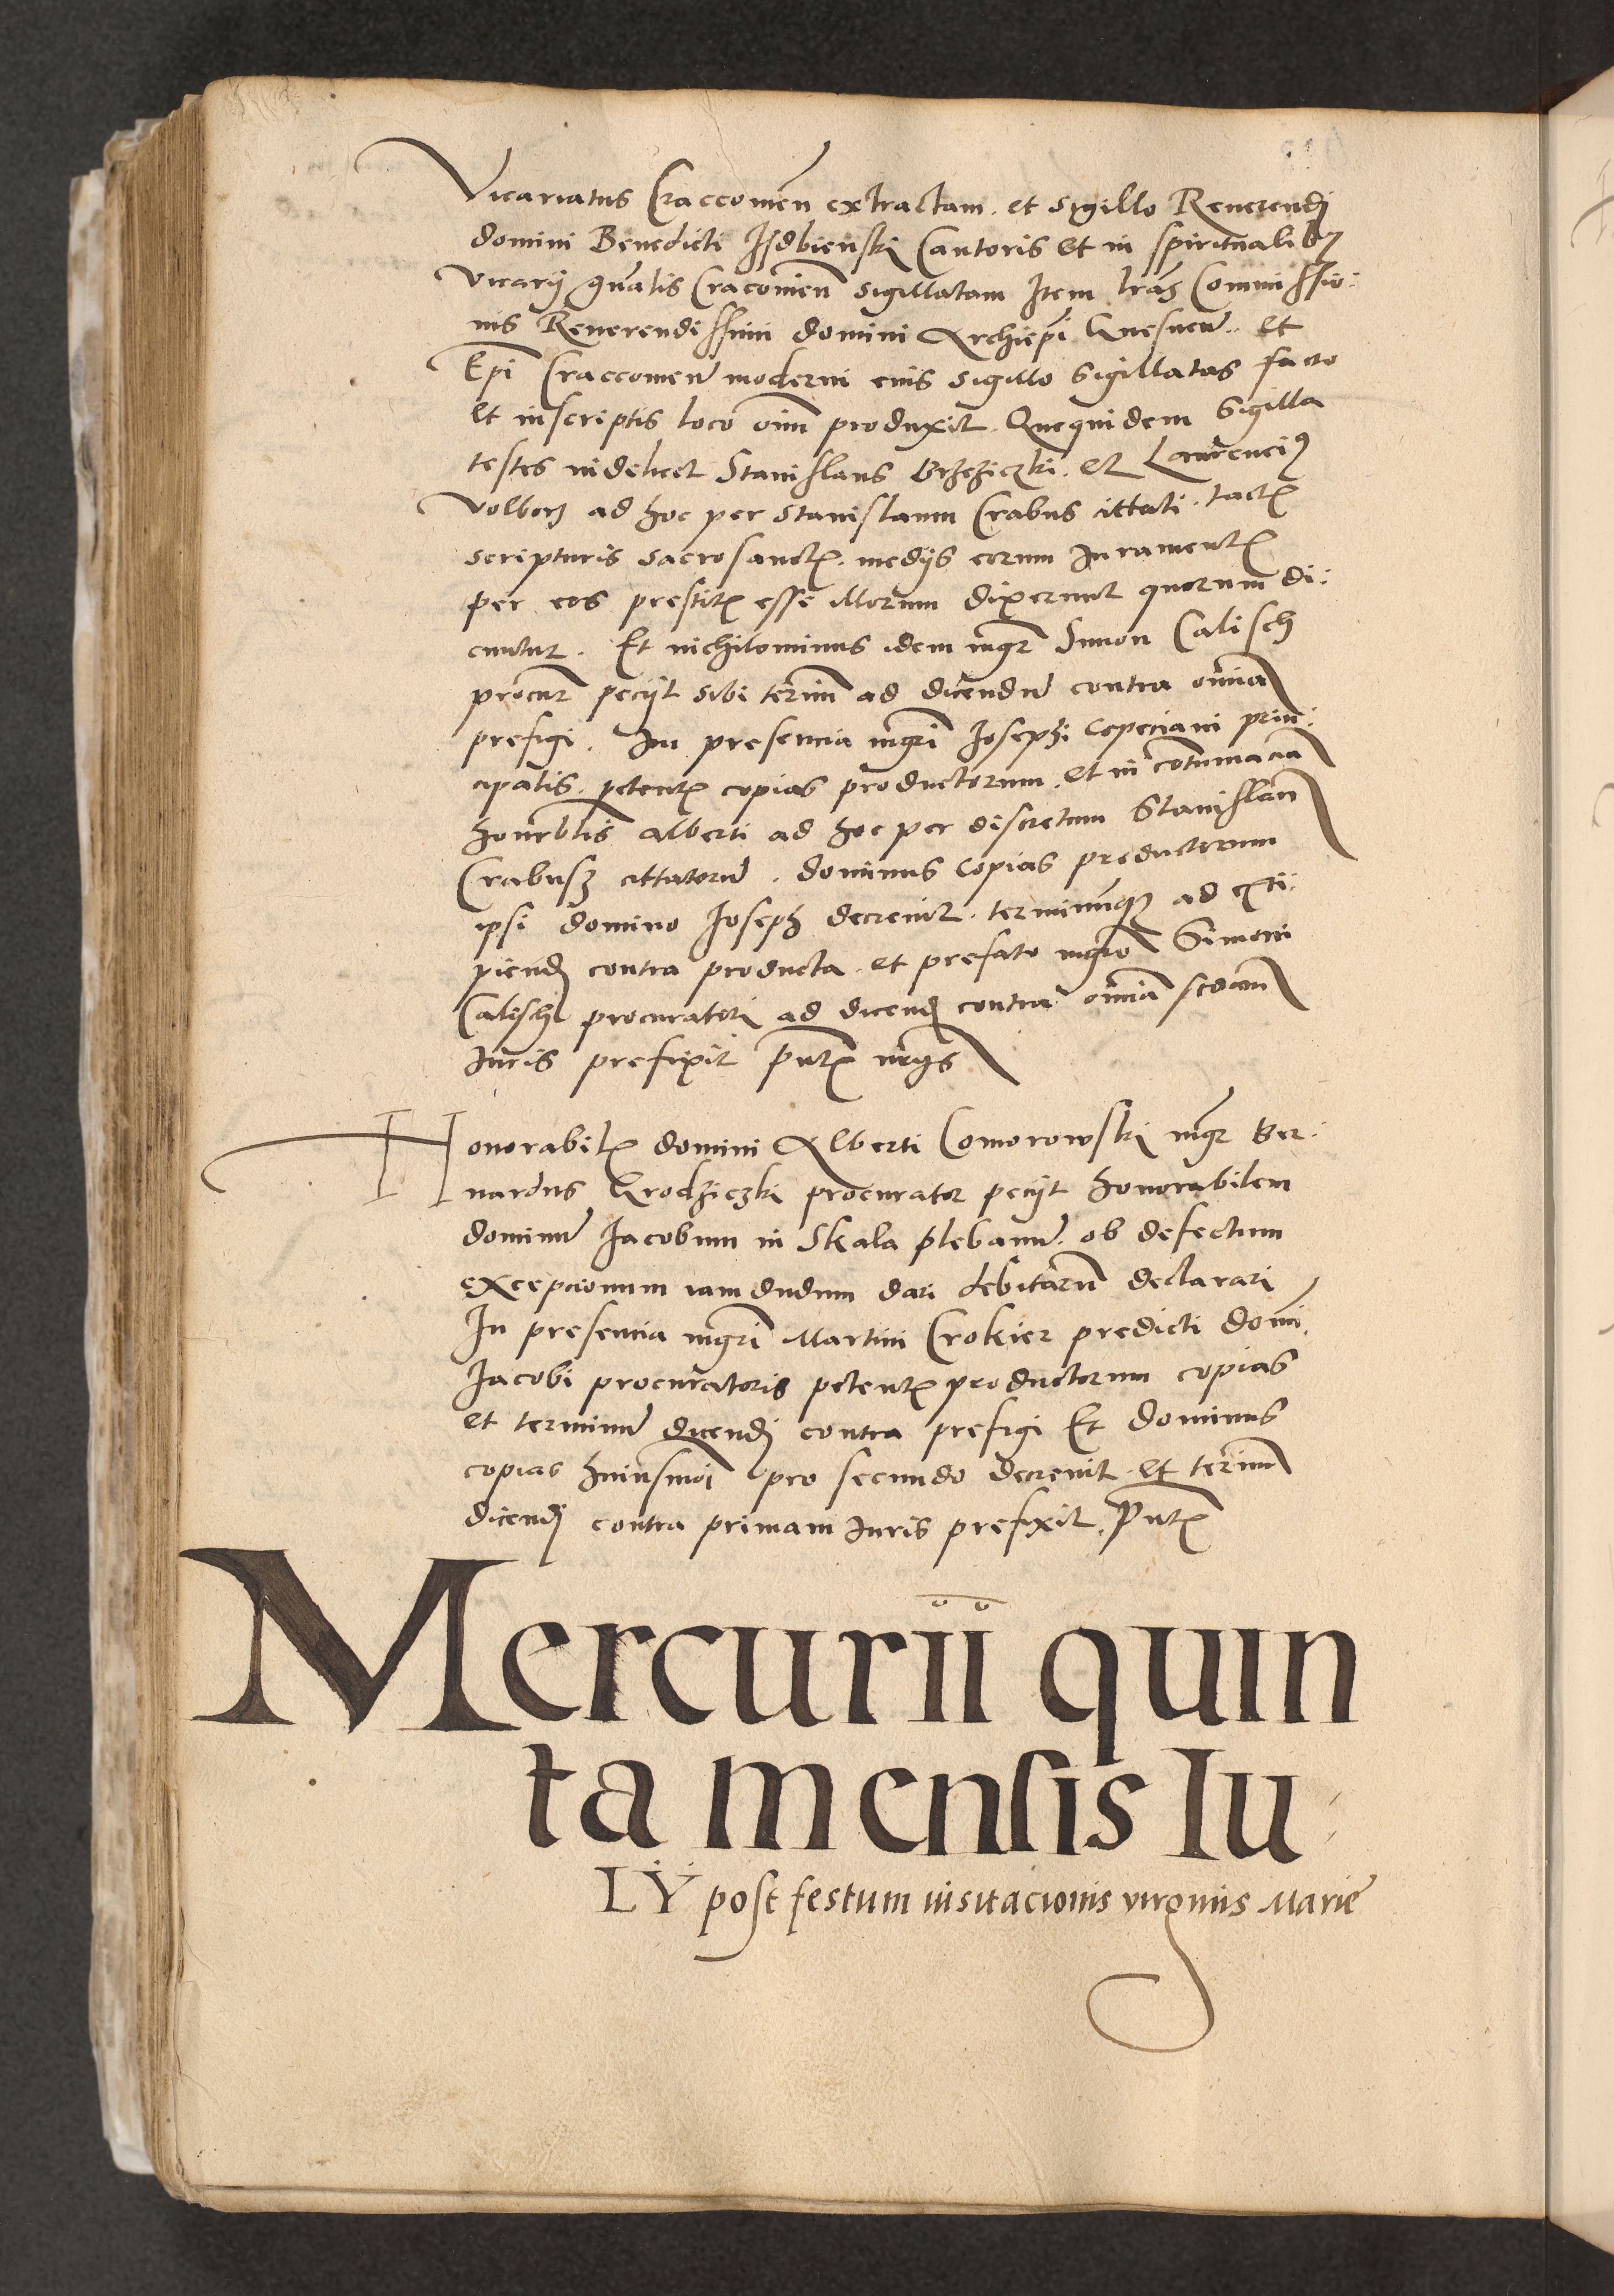 Vicariatus Craccovien̄ extractam. et sigillo Reverendj
domini Benedicti Isdbienskj Cantoris et in spiritualibꝫ
vicarij gn̄alis Cracovien̄ sigillatam Item lr̄as Commissio:
nis Reverendissimi domini Archiep̄i Gnesnen̄. et
Ep̄i Craccovien̄ moderni eius sigillo sigillatas facto
et inscriptis loco om̄m produxit. Quequidem sigilla
testes videlicet Stanislaus Brzeziczki. et Laurenciꝰ
Volborz ad hoc per Stanislaum Crabus cittati. tactꝭ
scripturis sacrosanctꝭ. medijs eorum Iuramentꝭ
per eos prestitꝭ esse illorum dixerunt quorum di:
cuntur. Et nichilominus idem mḡr Simon Calisch
procur̄ pecijt sibi ter̄im ad dicendū contra om̄ia
prefigi. In presencia mḡri Josephi Cepeciani prin:
cipalis. petentꝭ copias productorum. et in cōtumacia
honor̄blis Alberti ad hoc per discretum Stanislau̅
Crabusz cittatorū. dominus copias productorum
ipsi domino Joseph decrevit. terminumqꝫ ad exci:
piendj contra producta. et prefato mḡro Simoni
Calisch procuratorj ad dicendj contra om̄ia scd̄am
iuris prefixit pn̄tꝭ
Honorabilꝭ domini Alberti Comorowskj mḡr Ber:
nardus Grodziczki procurator pecijt honorabilem
dominū Jacobum in Skala plebanū. ob defectum
excepcionum iam dudum dari debitarū declarari
In presencia mḡri Martini Crokier predicti domi̅
Jacobi procuratoris petentꝭ productorum copias
et terminū dicendj contra prefigi Et dominus
copias huiusmōi pro secundo decrevit. et ter̄im
dicendj contra primam Iuris prefixit. Pn̄tꝭ
Mercurii quin
ta mensis Iu
LŸ post festum visitacionis virginis Marie